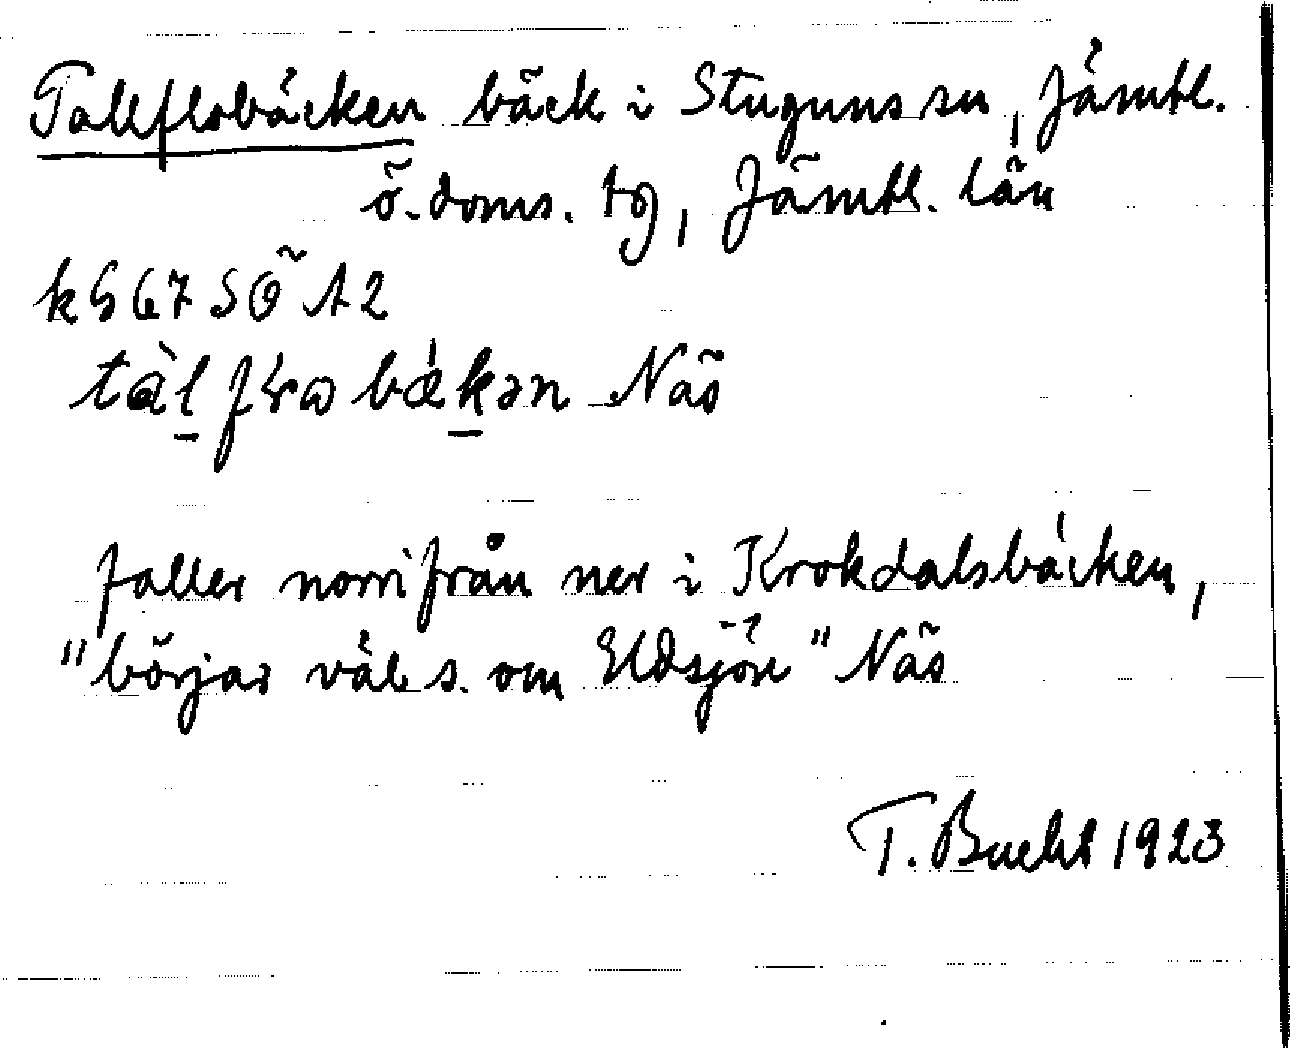 Tallflobäcken bäck i Stuguns sn, Jämtl.
ö. doms. tg, Jämtl. län
k G 67 SÖ A2
faller norrifrån ner i Krokdalsbäcken,
"börjar väl s. om Eldsjön" Näs
T. Bucht 1923